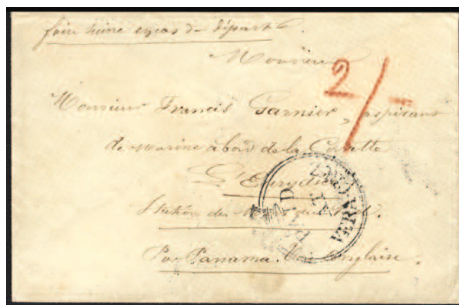 faire suivre en cas de départ
Monsieur
2/-
Monsieur Francis Garnier, aspirant
de marine à bord de la Corvette
L'Eurydice
Station des
Par Panama. Voie Anglaise.
VERA CRUZ